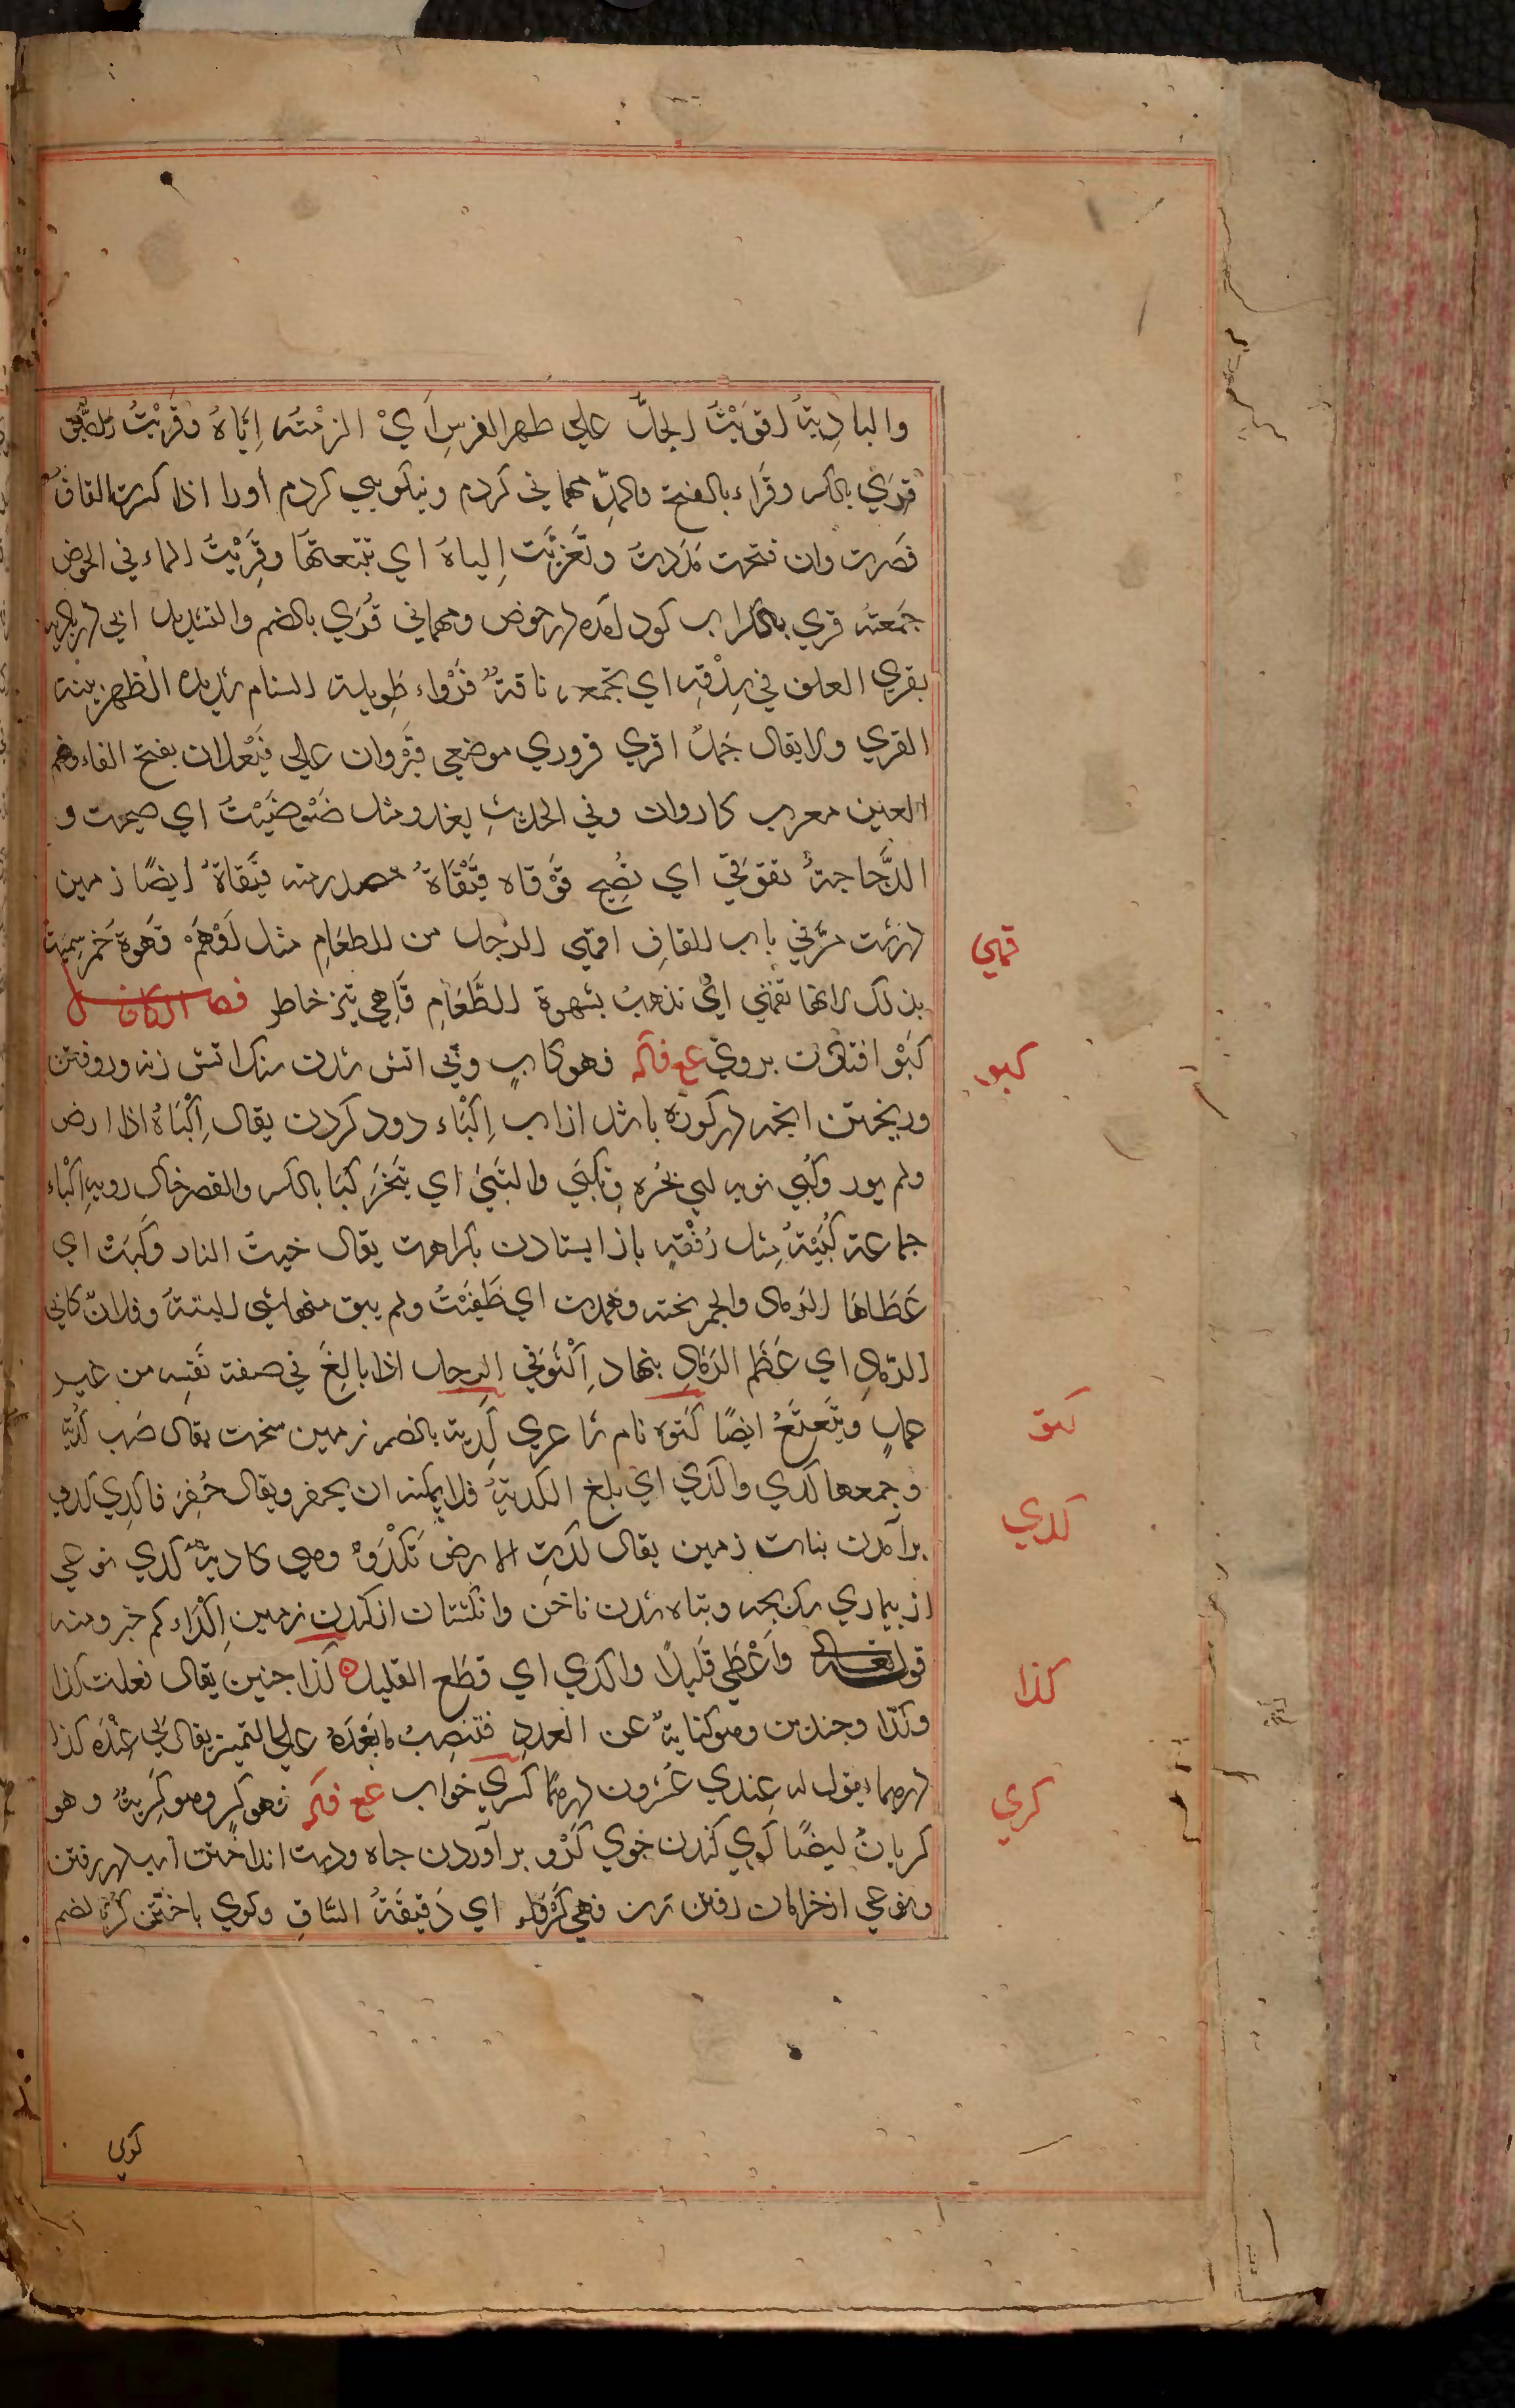 والبادية اقوَيْتُ الجلَّ علي ظهر الفرسِ اَيْ الزمْتَه اِيّاهُ وقَرَيْتُ الضّيفَ
قِرَي بالكسر وقَراء بالفتح والمدّ مهماني كردم ونيكويي كردم أورا اذا كسرت القاف
قصرت وان فتحت مَدَدتَ وتَقرّيْت المياهَ اي تتبعتها وقرَيْتُ الماء في الحوض
جَمعتُه قري بالكسر اب كرد آمده در حوض ومهماني قُرَي بالضم
يقري العلف في شِدْقِه اي يجمعه ناقةٌ قَرْواء طويلة السنام شديدة الظهر بينة
القري ولا يقال جَملٌ اقري قروري موضعي قَيْرَوان علي فَيْعلان بفتح الفاء وضم
العين معرب كاروان وفي الحديثِ يغدو مثل ضَوْضَيْتُ اي صيحت و
الدَّجاجةُ تقوقي اي تصُيح قَوْقاه قِيْقَاةٌ مصدر منه قِيَقاةٌ ايضًا زمين
درشت مرَّ في باب القافِ اقهي الرجل من الطعَامِ مثل اَوْهَمَ قَهوة خمر سميت
بذلك لانها تقهي ايْ تذهبُ بشهوة الطَّعَامِ قَاهِي تيز خاطر فصل الكاف
كَبْوا افتادن بروي ع ع فاكه فهو كابٍ وني اتش شدن سنك اتش زنه وروفتن
وريختن انجه در كوزه باشد از اب اِكْبَاء دود كردن يقال اِكْبَاهُ اذا ارض
ولم يور وكُبُي ثوبه لبي بخُره وتكبّي والتَبيَ اي تَبَخَّرَ كِبَا بالكسر والقصر خاك روبه اِكْباء
جماعة كُبْيَةٌ مثل رُفْقةٍ باز ايستادن بكراهت يقال خبت النار وكَبَتْ اي
غَطَاها الرّماد والجمر تحته وهمدت اي طَفِئَتْ ولم يبق منها شي البتةَ وفلانٌ كابي
الرّمادِ اي عَظَم الرّمادِ بنهاد اِكْتَوَتَي الرجل اذا بالغَ في صفة نَفسِه من غير
عملٍ وتَتَعْتَعُ ايضًا كتوه نام شاعري كُدية بالضم زمين سخت يقال ضب كُديَة
وجمعها كُدي واكدَي اي بلغ الكديةَ فلا يمكنه ان يحفر ويقال حُفِرَ فاكدِي كدو
برآمدن بنات زمين يقال كدَتِ الارض تَكْدُو وهي كاديةٌ كدي نوعي
از بيماري سك بجه وتباه شدن ناخن وانكشتان از كندن زمين اِكْدَاء كم خير ومنه
قوله تعالى وَاَعْطَي قَليلًا واكدَي اي قطَع القليل كذا جنين يقال فعلت كذا
وكذا وجندين وهو كنايةٌ عن العددِ فتنصِبُ مابَعْدَهُ علي التميز يقال لي عِنْدَه كذا
درهمًا ويقول له عِندي عشرون درهمًا كري خواب ع ع فكه فهو كرٍ وهو كَرِيةٌ وهو
كريانٌ ايضًا كري كندن جوي كَرْو برآوردن جاه ودست انداختن اسب در رفتن
ونوعي از خراميدن رفتن زن فهي كَرْواء اي دَقيقَةُ السّاقِ وكوي باختن كُرة بضم
قهي
كبو
كتو
كدي
كذا
كري
كوي